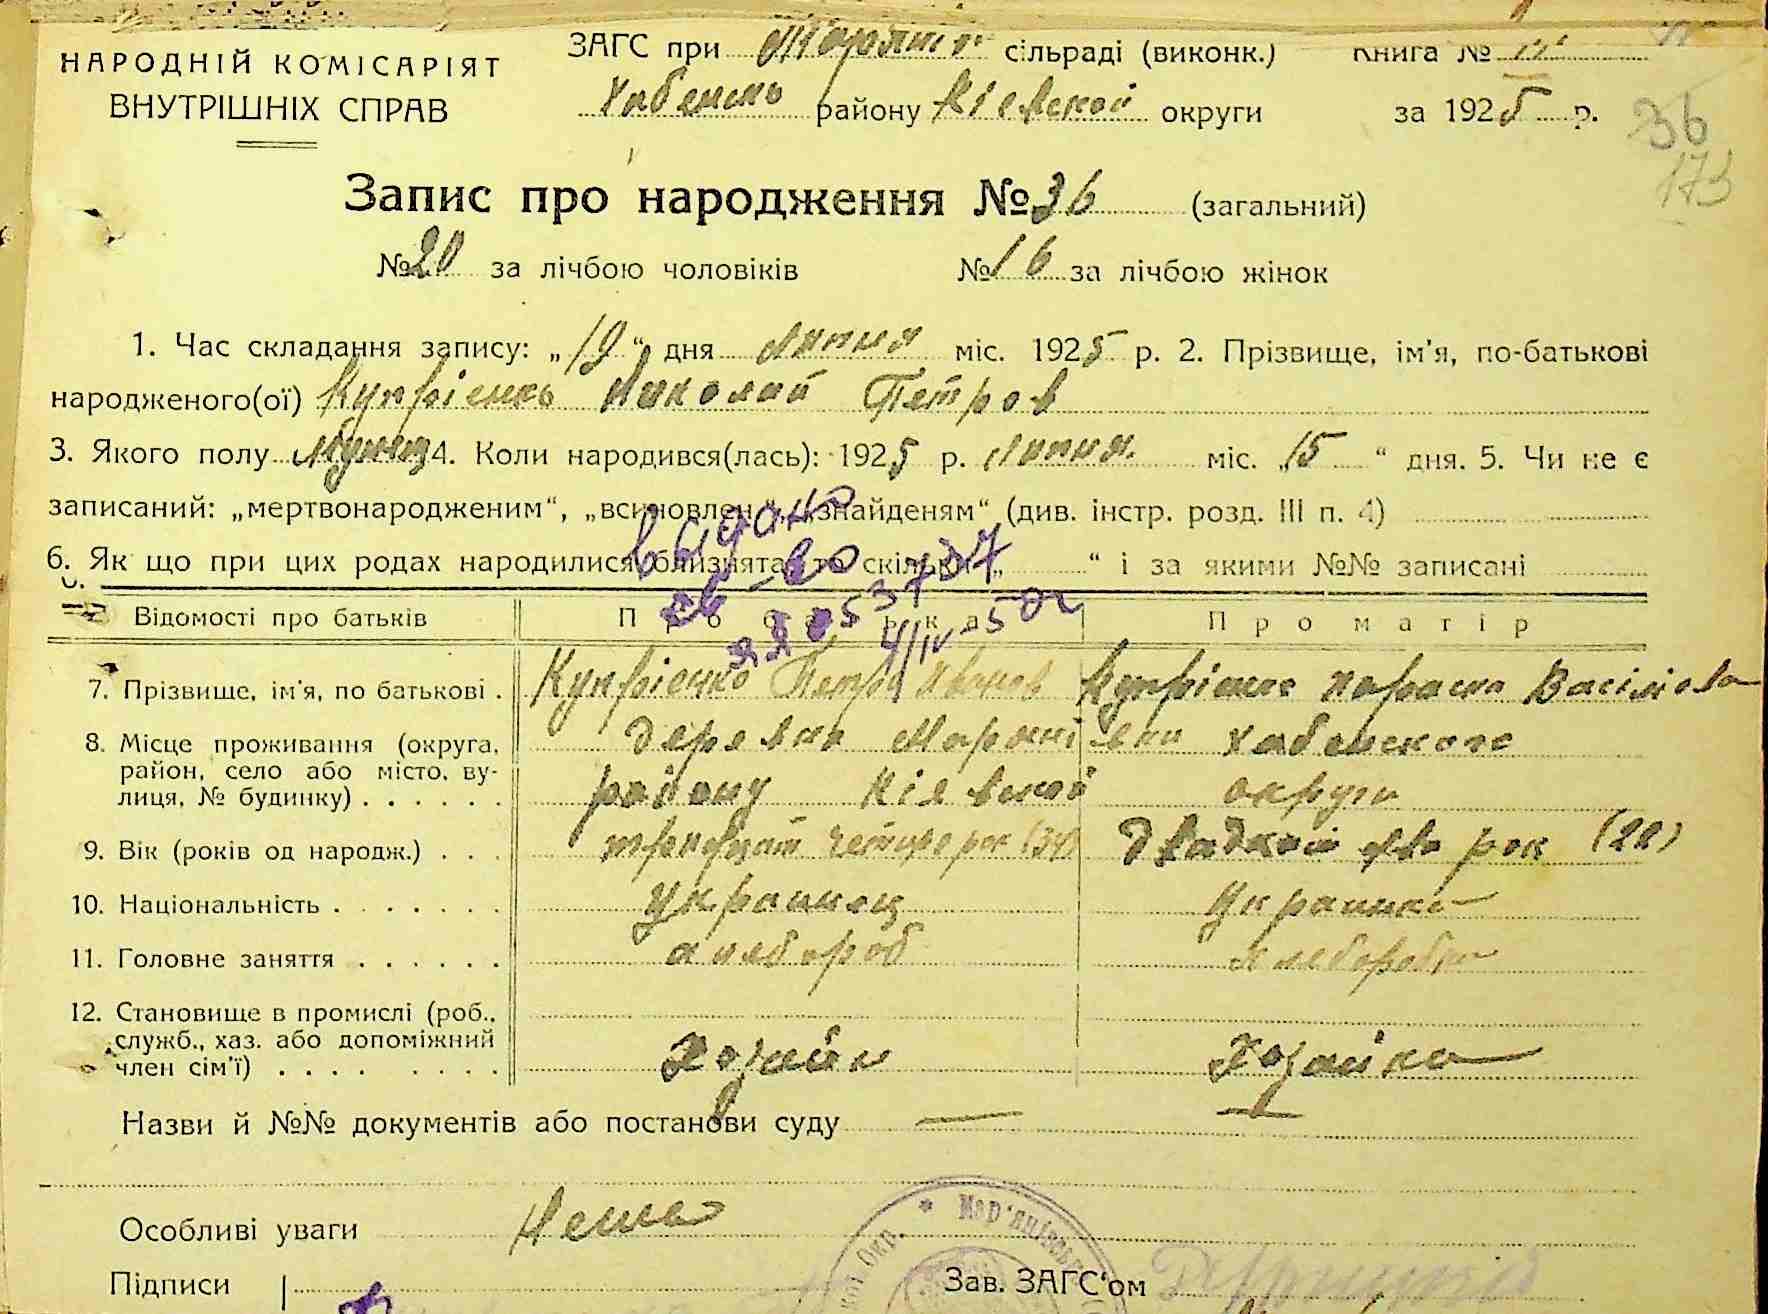 НАРОДНІЙ КОМІСАРІЯТ
ВНУТРІШНІХ СПРАВ
ЗАГС при сільраді (виконк.) Книга №
Хабенсь району Кіевской округи за 1925 р.
36
173
Запис про народження № 36 (загальний)
№ 20 за лічбою чоловіків № 16 за лічбою жінок
1. Час складання запису: „19“ дня липня міс. 1925 р. 2. Прізвище, ім'я, по-батькові
народженого(ої) Купріенко Николай Петров
3. Якого полу 4. Коли народився(лась): 1925 р. липня міс. „15“ дня. 5. Чи не є
записаний: „мертвонародженим“, „всиновлен“, „знайденям“ (див. інстр. розд. III п. 4)
6. Як що при цих родах народилися близнята, то скільки „ “ і за якими №№ записані
выдано
св-во
ЯЯ 053737
4/IV-50г
Відомості про батьків Про батька Про матір
7. Прізвище, ім'я, по батькові . Купріенко Петро Иванов Купріенко Параска Васілєва
8. Місце проживання (округа, деревни Марянівки Хабенского
район, село або місто, ву-
лиця, № будинку) . . . . . . району Кіявской округи
9. Вік (років од народж.) . . . четире рок (34) два рок (22)
10. Національність . . . . . . . Украинец Украинка
11. Головне заняття . . . . . . хлебороб хлеборобка
12. Становище в промислі (роб.,
служб., хаз. або допоміжний
член сім'ї) . . . . . . . . Хозяйн Хозайка
Назви й №№ документів або постанови суду — —
Особливі уваги Нема
Підписи Зав. ЗАГС'ом
Окр. * Мар'янівськ